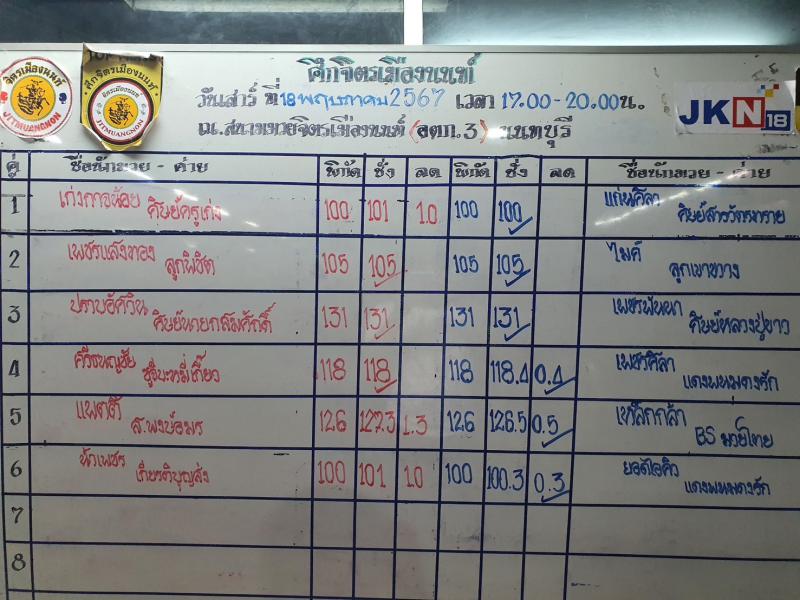 ศึกจิตรเมืองนนท์
วันเสาร์ ที่ 18 พฤษภาคม 2567 เวลา 17.00-20.00น.
ณ.สนามมวยจิตรเมืองนนท์ (อตก.3) นนทบุรี
จิตรเมืองนนท์
JITMUANGNON
ศึกจิตรเมืองนนท์
JITMUANGNON
JKN18
คู่ ชื่อนักมวย - ค่าย พิกัด ชั่ง ลด พิกัด ชั่ง ลด ชื่อนักมวย - ค่าย
1 เก่งกาจน้อย ศิษย์ครูเก่ง 100 101 1.0 100 100 แก่นศิลา
2 เพชรแสงทอง ลูกพิชิต 105 105 105 105 ไมค์ ลูกเขาขวาง
3 ปราบอัศวิน ศิษย์นายกสมศักดิ์ 131 131 131 131 เพชรพันนา ศิษย์หลวงปู่ขาว
4 ศรีธนญชัย 118 118 118 118.4 0.4 เพชรศิลา แดงพนมดงรัก
5 แพตตี้ ส.พงษ์อมร 126 127.3 1.3 126 126.5 0.5 เหล็กกล้า BS มวยไทย
6 ฟ้าเพชร เกียรติบุญส่ง 100 101 1.0 100 100.3 0.3 ยอดไอคิว แดงพนมดงรัก
7
8